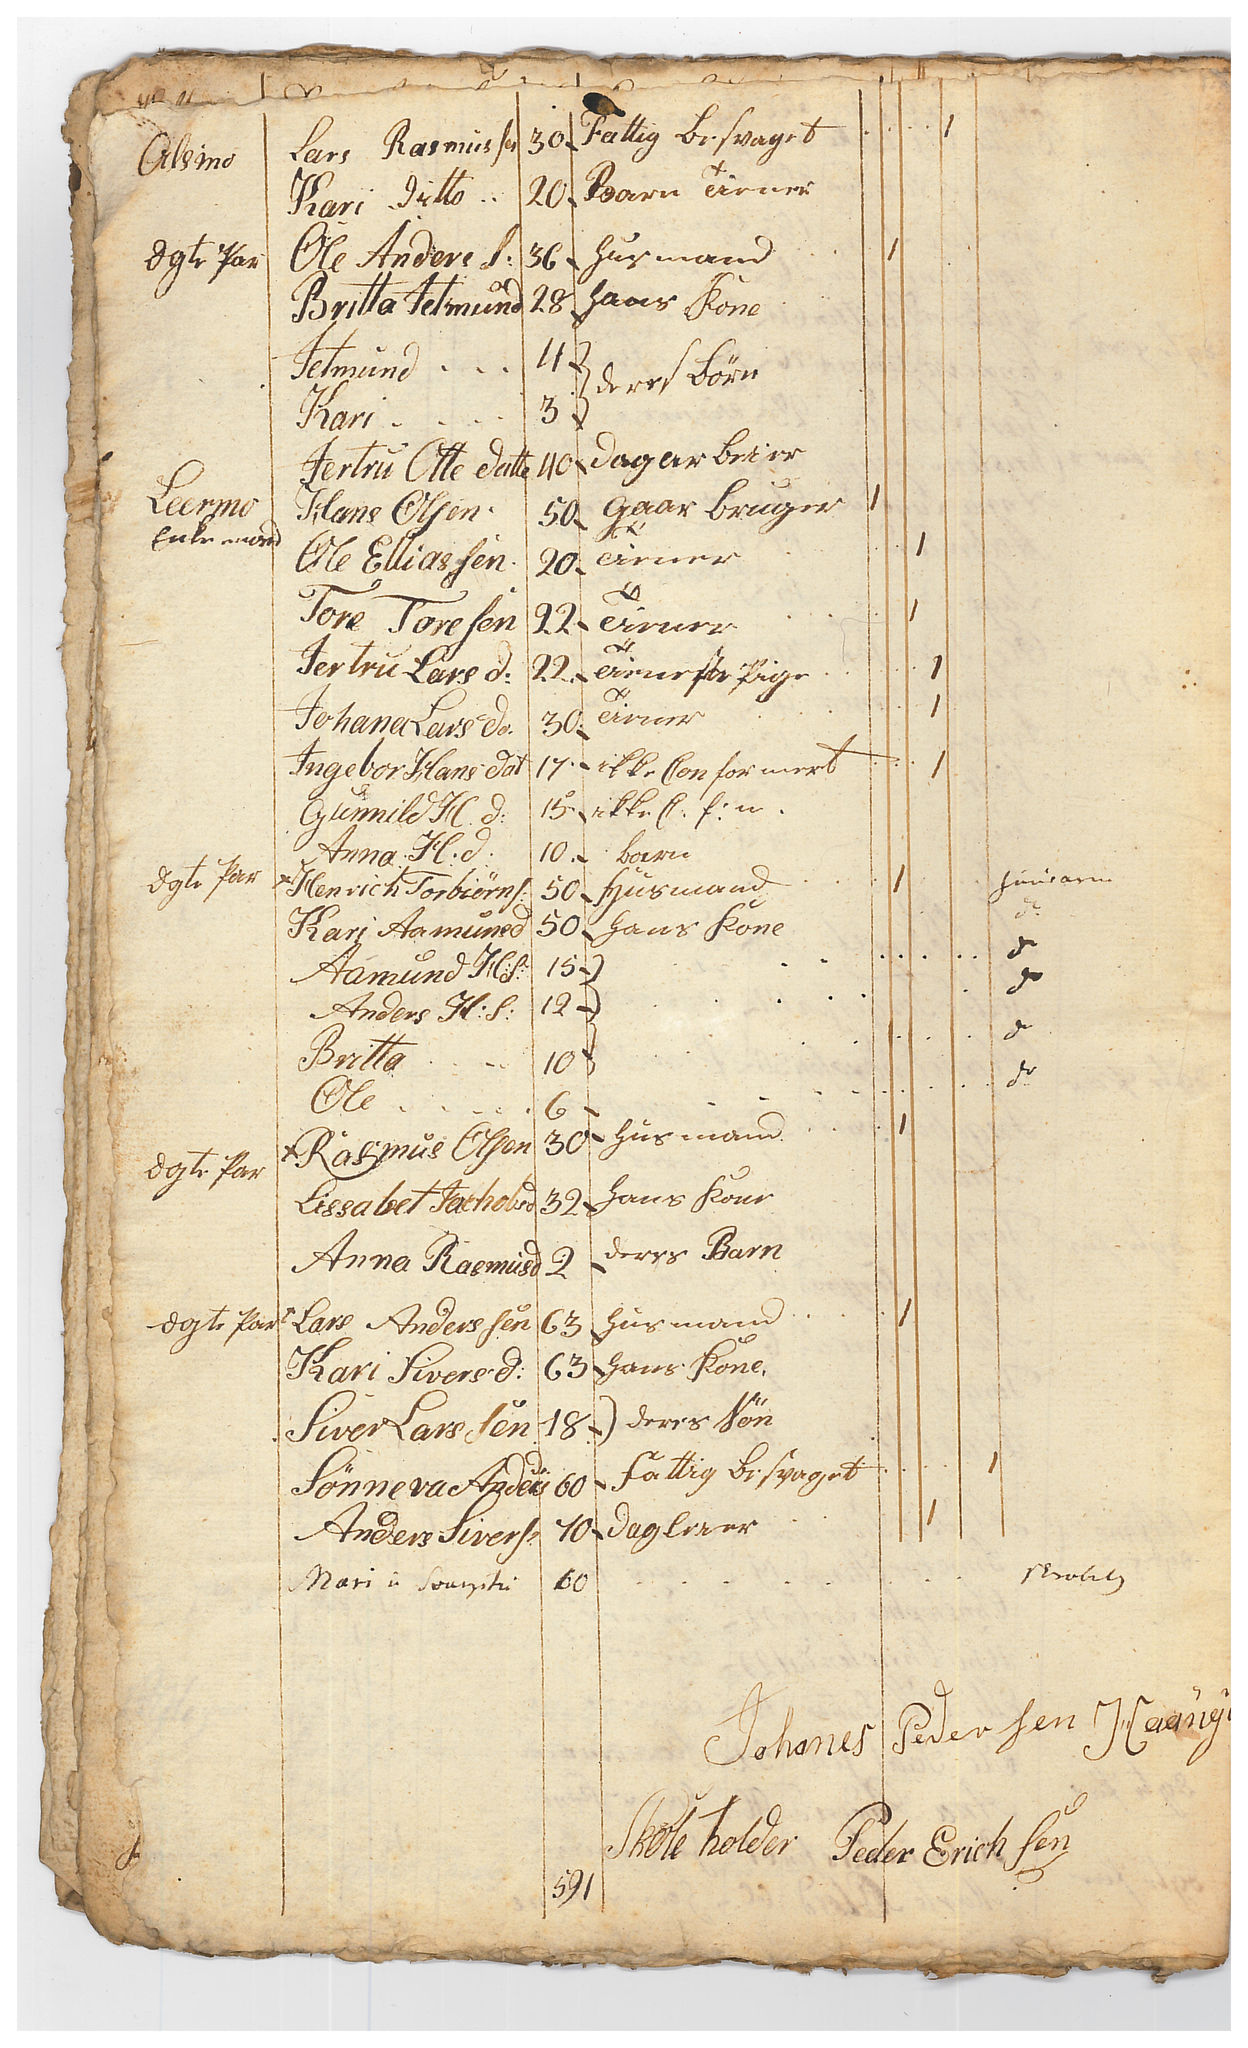 Alsmo Lars Rasmus sen 30 Fattig besvaget 1
Kari ditto 20 Barn Tiener
dgte Par Ole Anders S: 36 Husmand 1
Britta Jetmund d 28 hans Kone
Jetmund 4 deres börn
Kari 3
Jertru Otte datte 40 dagarbeier
Leermo Hans Olsen 50 Gaar bruger 1
Enke mand
Ole Ellias sen 20 Tiener 1
Tore Tore sen 22 Tiener 1
Jertru Lars d: 22 Tieneste Pige 1
Johana Lars do. 30 Tiener 1
Ingebor Hans dat 17 ikke Conformert 1
Gunnild H. d: 15 ikke C. f: m.
Anna H. d. 10 barn
dgte Par Henrich Torbiörn s: 50 Husmand 1
Kari Aamunsd 50 hans Kone d:
Aamund H: S: 15 do
Anders H: S: 12 do
Britta 10 do
Ole 6 do
dgte Par Rasmus Olsen 30 Husmand 1
Lissabet Jachobsd 32 hans Kone
Anna Rasmusd 2 deres Barn
dgte Par Lars Anders sen 63 Husmand 1
Kari Sivers d: 63 hans Kone.
Siver Lars sen 18 deres Sön
Sönneva Anders d 60 Fattig besvaget 1
Anders Sivers: 70 dagleier 1
Mari 60
Johanes Peder sen
Skole holder Peder Erich sen
591